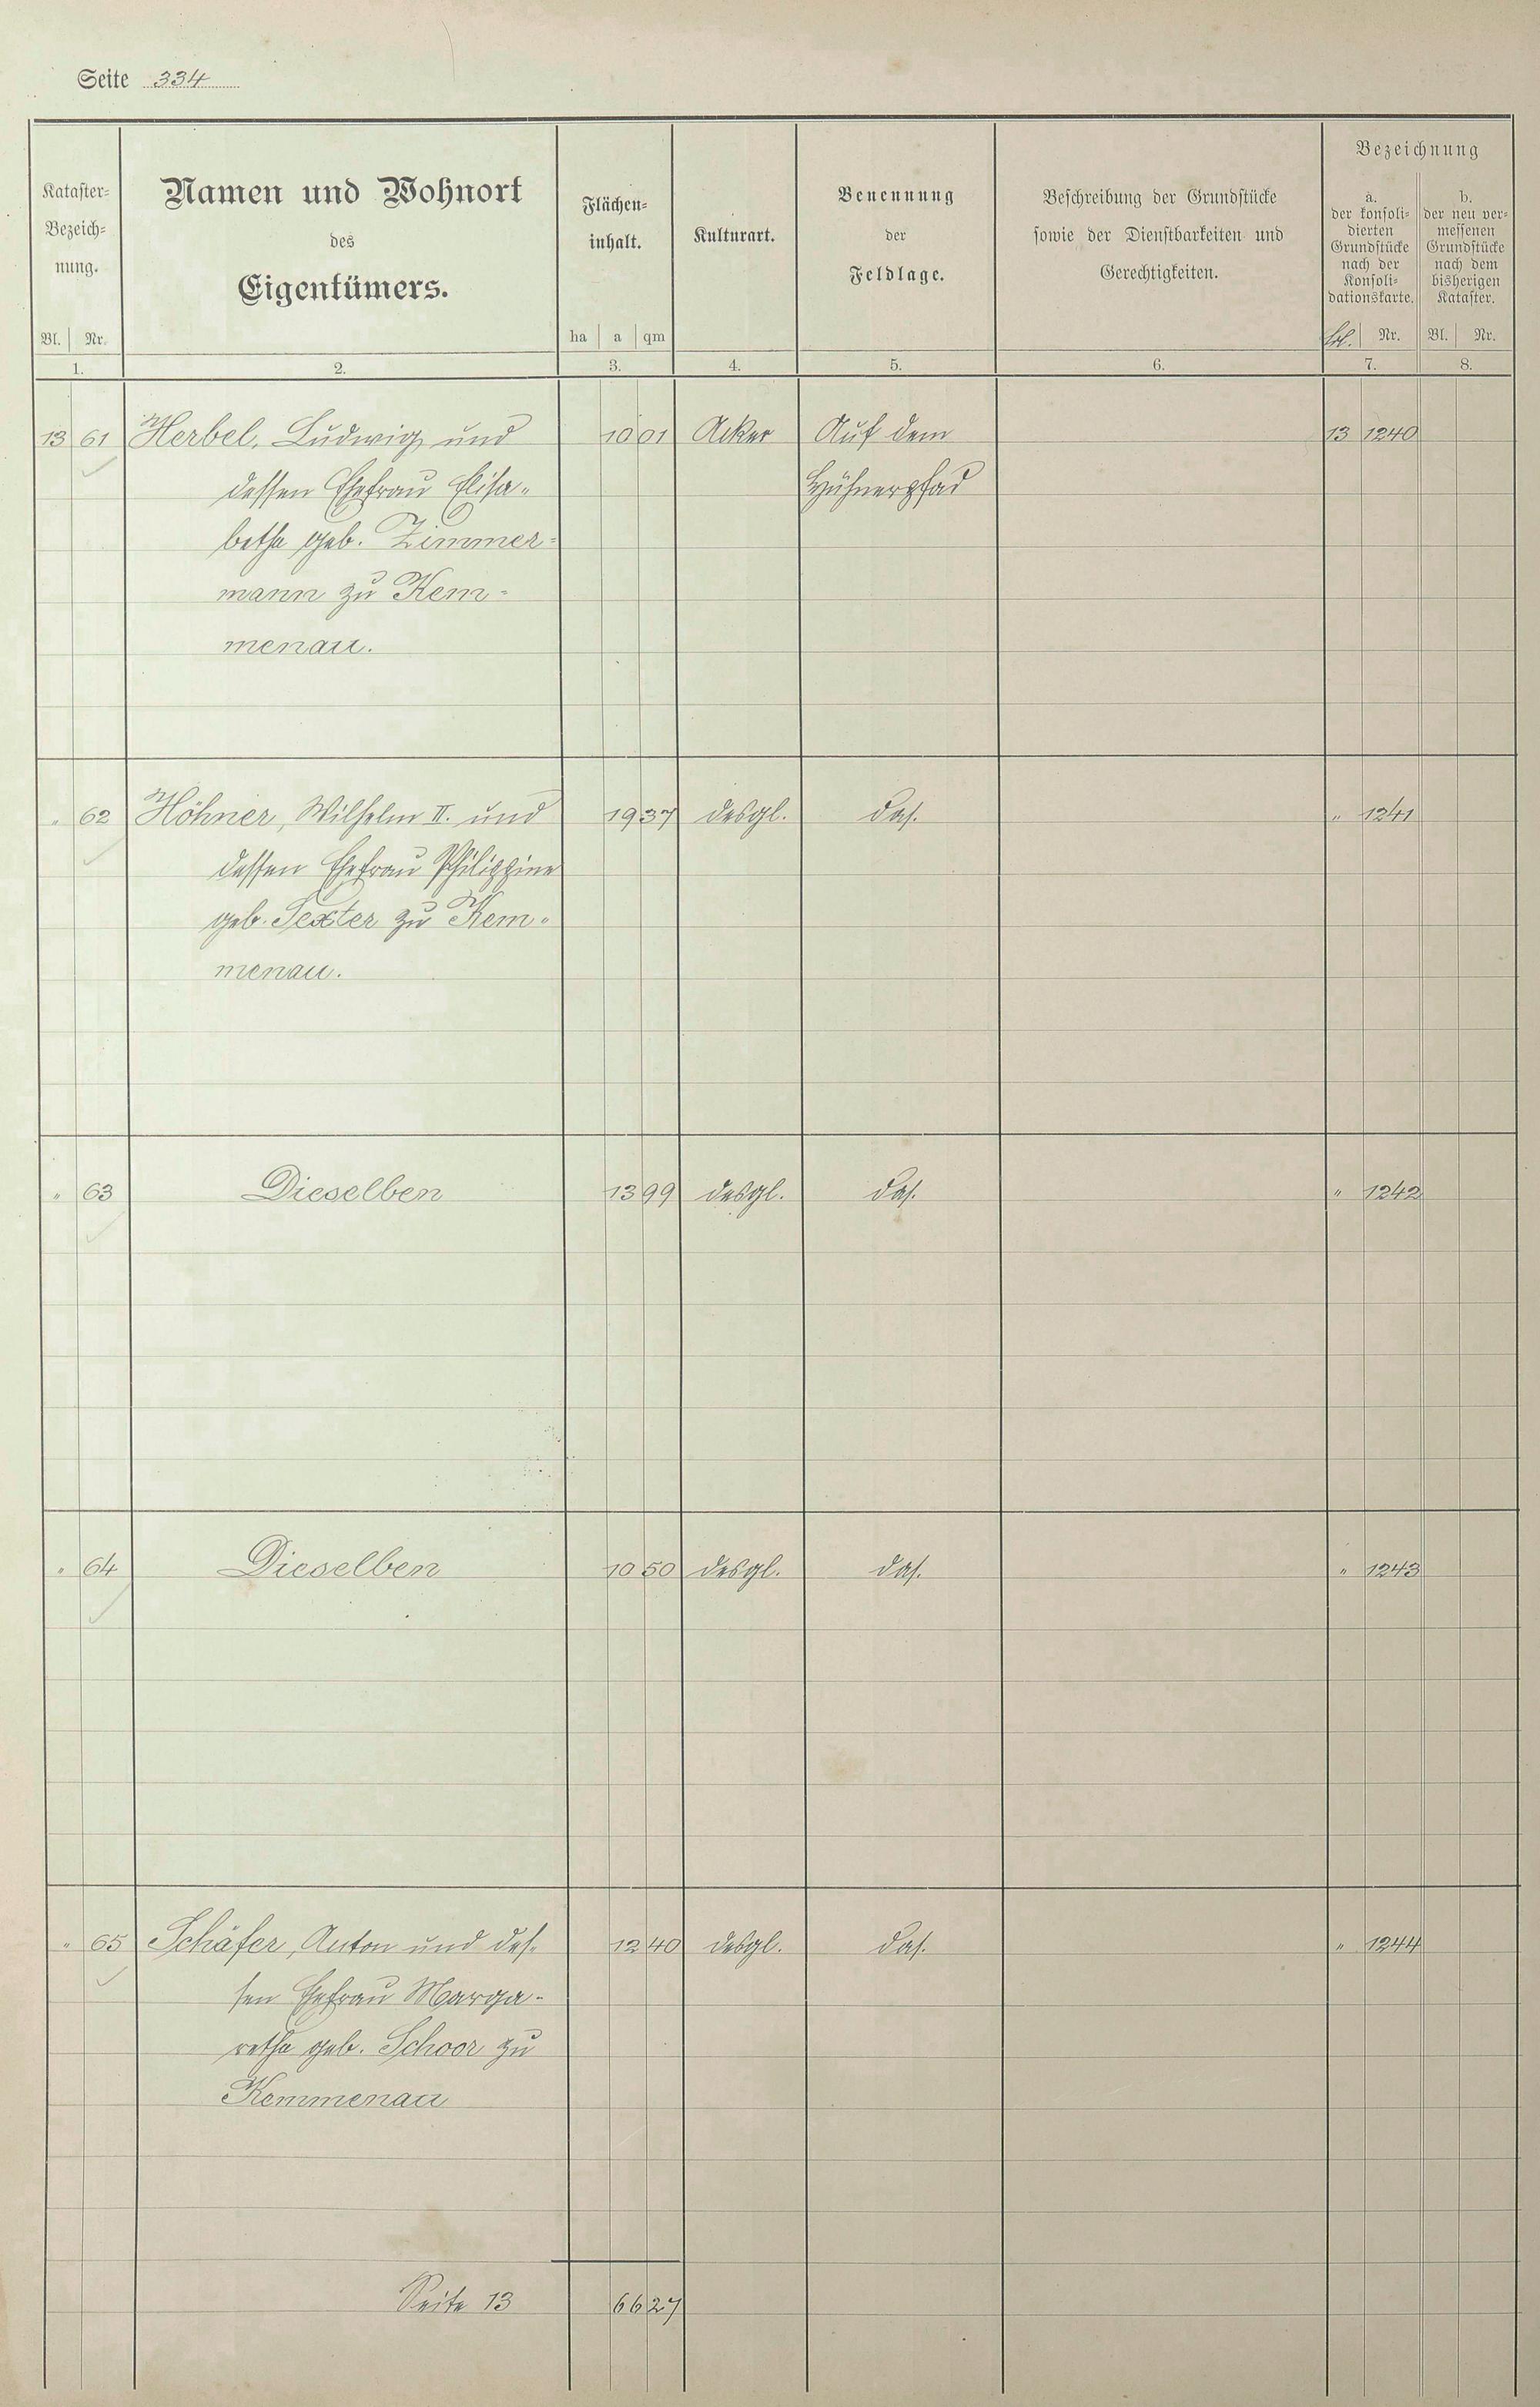 Seite 334
Kataster-
Bezeich-
nung.
Bl. Nr.
1.
Namen und Wohnort
des
Eigentümers.
2.
Flächen-
inhalt.
ha a qm
3.
Kulturart.
4.
Benennung
der
Feldlage.
5.
Beschreibung der Grundstücke
sowie der Dienstbarkeiten und
Gerechtigkeiten.
6.
Bezeichnung
a.
der konsoli-
dierten
Grundstücke
nach der
Konsoli-
dationskarte.
Nr.
7.
b.
der neu ver-
messenen
Grundstücke
nach dem
bisherigen
Kataster.
Bl. Nr.
8.
13 61 Herbel, Ludwig und 10 01 Acker Auf dem 13 1240
dessen Ehefrau Elisa- Hühnerpfad
betha geb. Zimmer-
mann zu Kem-
menau.
" 62 Höhner, Wilhelm II. und 19 37 desgl. das. " 1241
dessen Ehefrau Philippine
geb. Sexter zu Kem-
menau.
" 63 Dieselben 13 99 desgl. das. " 1242
" 64 Dieselben 10 50 desgl. das. " 1243
" 65 Schäfer, Anton und des- 12 40 desgl. das. " 1244
sen Ehefrau Marga-
retha geb. Schoor zu
Kemmenau
Seite 13 66 27